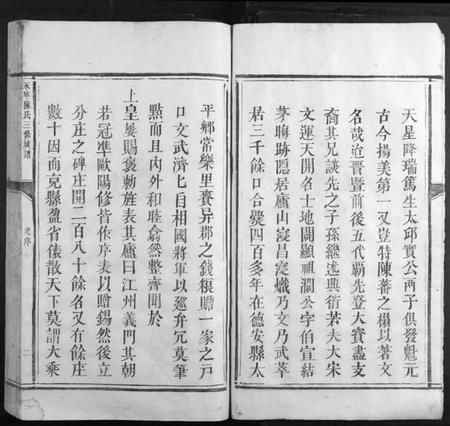 天星降瑞篤生太邱實公兩子俱發魁元
古今揚美第一又豈特陳蕃之榻以著文
名哉迨晉暨前後五代覇先登大寶盡支
裔其兄談先之子孫繼述興衍若夫大宋
文運天開名士地闢顯祖瀾公字伯宣結
茅聊跡隱居廬山寖昌寖熾乃文乃武萃
居三千餘口合爨四百多年在德安縣太
平鄉常樂里賚异郡之錢糧贍一家之戸
口文武濟匕自相國將軍以廵弁冗莫筆
點而且内外和睦翕然整齊聞於
上皇屡賜褒勅旌表其廬曰江州義門其朝
若冠準歐陽修皆作序表以贈錫然後立
分庄之碑庄開二百八十餘名又有餘庄
數十因而克縣盈省俵散天下莫謂大乘
陳氏三修族譜
老序
二